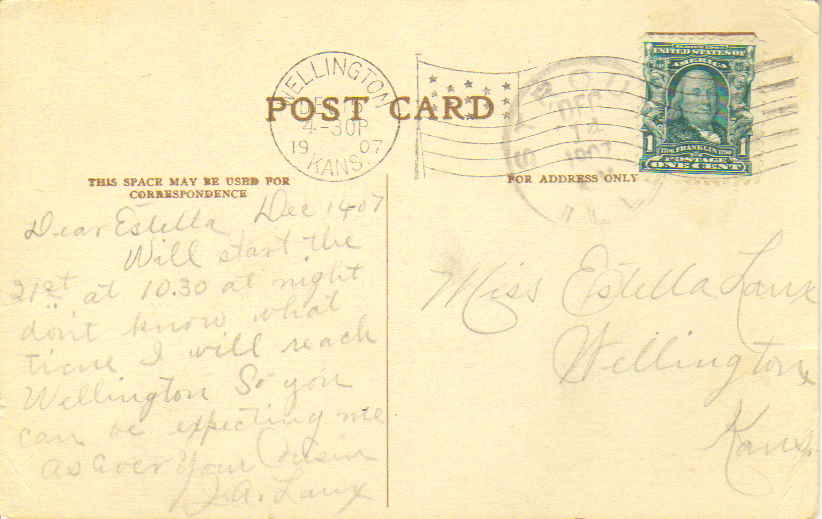 WELLINGTON
DEC
4-30P
19 07
KANS.
DEC
14
1907
UNITED STATES OF
AMERICA
1 FRANKLIN 1
POSTAGE
ONE CENT
POST CARD
THIS SPACE MAY BE USED FOR
CORRESPONDENCE
FOR ADDRESS ONLY
Dec 14 07
Dear Estella
Will start the
21st at 10.30 at night
don't know what
time I will reach
Wellington So you
can be expecting me
as ever your Cousin
J.A. Laux
Miss Estella Laux
Wellington
Kans.